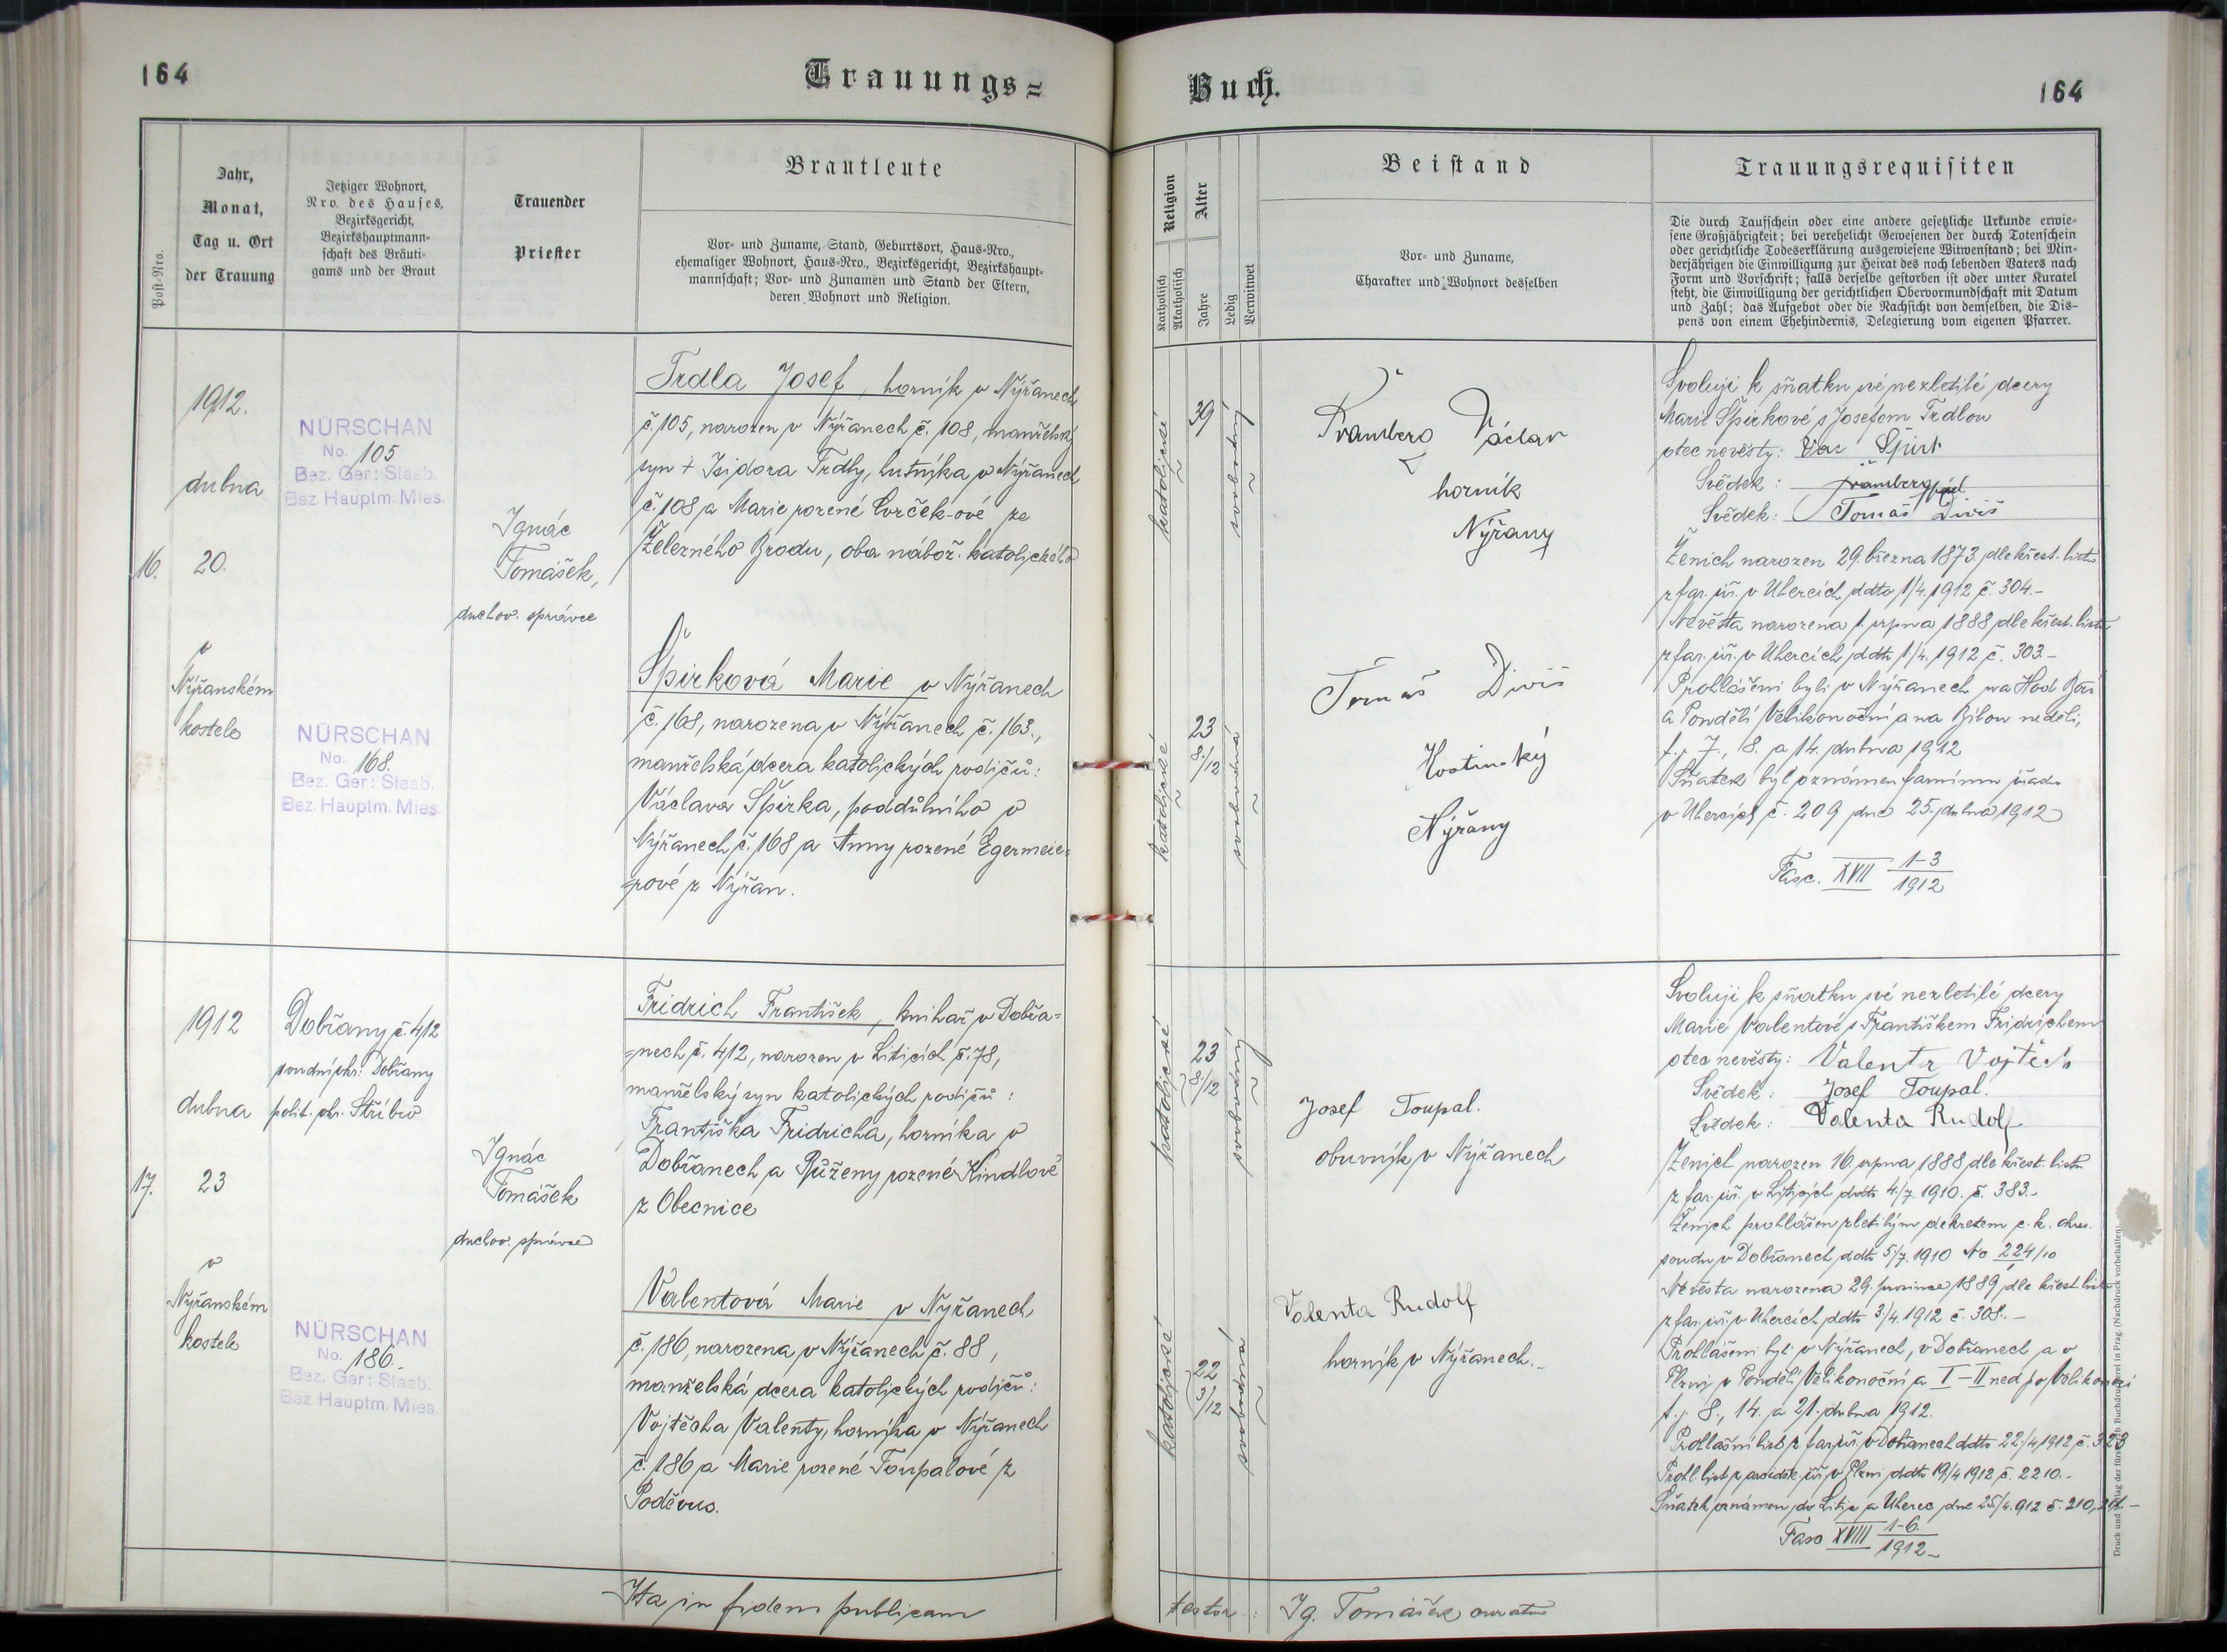 164
Trauungs=
Post-Nro.
Jahr,
Monat,
Tag u. Ort
der Trauung
Jetziger Wohnort,
Nro. des Hauses,
Bezirksgericht,
Bezirkshauptmann-
schaft des Bräuti-
gams und der Braut
Trauender
Priester
Brautleute
Vor- und Zuname, Stand, Geburtsort, Haus-Nro.,
ehemaliger Wohnort, Haus-Nro., Bezirksgericht, Bezirkshaupt-
mannschaft; Vor- und Zunamen und Stand der Eltern,
deren Wohnort und Religion.
16.
1912.
dubna
20.
v
Nýřanském
kostele
NÜRSCHAN
No. 105
Bez. Ger: Staab.
Bez Hauptm. Mies.
NÜRSCHAN
No. 168.
Bez. Ger: Staab.
Bez Hauptm. Mies.
Ignác
Tomášek,
duchov. správce
Trdla Josef, horník v Nýřanech
č. 105, narozen v Nýřanech č. 108, manželský
syn + Isidora Trdly, hutníka v Nýřanech
č. 108 a Marie rozené Cvrček-ové ze
Železného Brodu, oba nábož. katolického
Špirková Marie v Nýřanech
č. 168, narozena v Nýřanech č. 163.,
manželská dcera katolických rodičů:
Václava Špirka, poddůlního v
Nýřanech č. 168 a Anny rozené Egermeie=
=rové z Nýřan.
17.
1912
dubna
23
v
Nýřanském
kostele
Dobřany č. 412
soudní okr: Dobřany
polit. okr. Stříbro
NÜRSCHAN
No. 186.
Bez. Ger: Staab.
Bez Hauptm. Mies.
Ignác
Tomášek
duchov. správce
Fridrich František, knihař v Dobřa=
=nech č. 412, narozen v Liticích č. 78,
manželský syn katolických rodičů:
Františka Fridricha, horníka v
Dobřanech a Růženy rozené Kindlové
z Obecnice
Valentová Marie v Nýřanech
č. 186, narozena v Nýřanech č. 88,
manželská dcera katolických rodičů:
Vojtěcha Valenty, horníka v Nýřanech
č. 186 a Marie rozené Toupalové z
Poděvus.
Ita in fidem publicam
Buch.
164
Religion
Katholisch
Akatholisch
Alter
Jahre
Ledig
Verwitwet
Beistand
Vor- und Zuname,
Charakter und Wohnort desselben
Trauungsrequisiten
Die durch Taufschein oder eine andere gesetzliche Urkunde erwie-
sene Großjährigkeit; bei verehelicht Gewesenen der durch Totenschein
oder gerichtliche Todeserklärung ausgewiesene Witwenstand; bei Min-
derjährigen die Einwilligung zur Heirat des noch lebenden Vaters nach
Form und Vorschrift; falls derselbe gestorben ist oder unter Kuratel
steht, die Einwilligung der gerichtlichen Obervormundschaft mit Datum
und Zahl; das Aufgebot oder die Nachsicht von demselben, die Dis-
pens von einem Ehehindernis, Delegierung vom eigenen Pfarrer.
katolické
39
svobodný
katolické
23
8/12
svobodná
Václav
horník
Nýřany
Tomáš Diviš
Hostinský
Nýřany
Svoluji k sňatku své nezletilé dcery
Marie Špirkové s Josefem Trdlou
otec nevěsty: Vac Špirk
Svědek:
Svědek: Tomáš Diviš
Ženich narozen 29. března 1873 dle křest. listu
z far. úř. v Uhercích ddto 1/4. 1912 č. 304.-
Nevěsta narozena 1. srpna 1888 dle křest. listu
z far. úř. v Uhercích ddto 1/4. 1912 č. 303-
Prohlášeni byli v Nýřanech na Hod Boží
a Pondělí Velikonoční a na Bílou neděli,
t. j. 7., 8. a 14. dubna 1912
Sňatek byl oznámen farnímu úřadu
v Uhercích č. 209 dne 25. dubna 1912
Fasc. XVII 1-3
1912
katolické
23
8/12
svobodný
katolické
22
3/12
svobodná
Josef Toupal.
obuvník v Nýřanech
Valenta Rudolf
horník v Nýřanech.-
Svoluji k sňatku své nezletilé dcery
Marie Valentové s Františkem Fridrichem
otec nevěsty: Valenta Vojtěch
Svědek: Josef Toupal.
Svědek: Valenta Rudolf
Ženich narozen 16. srpna 1888 dle křest. listu
z far. úř. v Liticích ddto 4./7. 1910. č. 383.-
Ženich prohlášen zletilým dekretem c. k. okres.
soudu v Dobřanech ddto 5/7. 1910 No 224/10
Nevěsta narozena 29. prosince 1889 dle křest. listu
z far. úř. v Uhercích ddto 3./4. 1912 č. 308.-
Prohlášeni byli v Nýřanech, v Dobřanech a v
Plzni v Pondělí Velikonoční a I-II ned. po Velikonoci
t. j. 8., 14. a 21. dubna 1912.
Prohlášní list z far. úř. v Dobřanech ddto 22/4 1912 č. 323
Prohl. list z arciděk. úř. v Plzni ddto 19/4 1912 č. 2210.-
Sňatek oznámen do Litic a Uherec dne 25/4. 912 č. 210, 211-
Fasc XVIII 1-6.
1912-
testor: Ig. Tomášek curatus